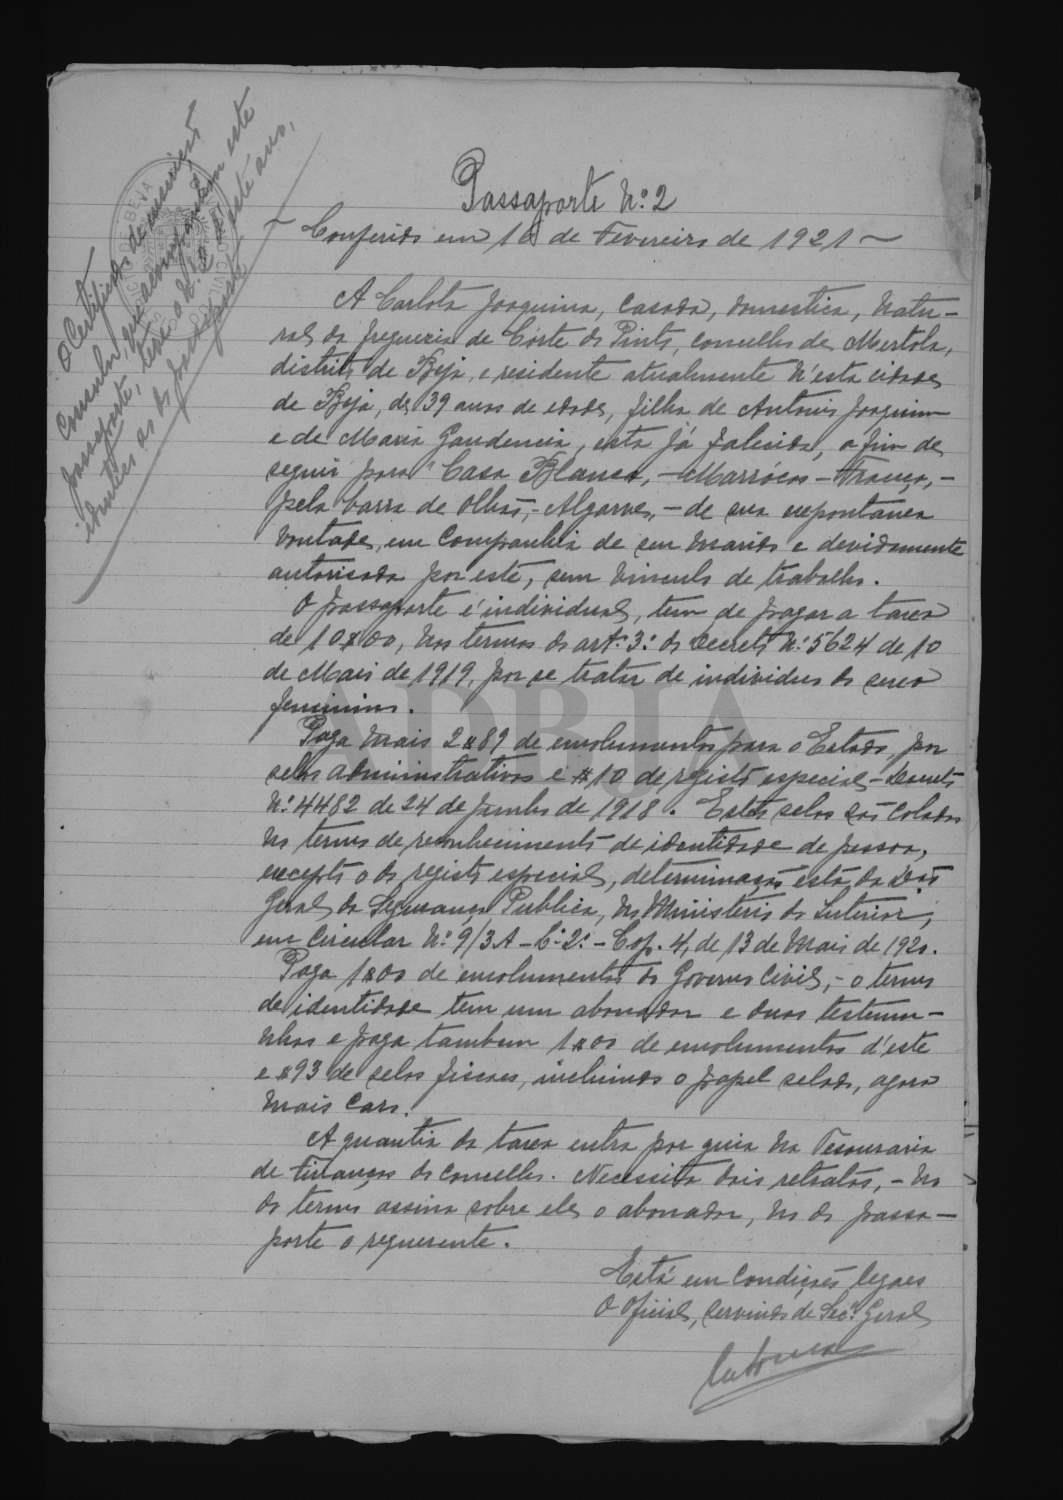 O Certificado de inscrição
consular, que acompanhou este
passaporte, teve o N.º 2 d'este ano,
identico ao do passaporte
Passaporte N.º 2
— Conferido em 16 de Fevereiro de 1921 —
A Carlota Joaquina, casada, domestica, natu-
ral da freguezia de Côrte do Pinto, concelho de Mertola,
distrito de Beja, e residente atualmente n'esta cidade
de Beja, de 39 anos de edade, filha de Antonio Joaquim
e de Maria Gaudencia, esta já falecida, a fim de
seguir para Casa Blanca, — Marrócos — França, —
pela barra de Olhão, — Algarve, — de sua expontanea
vontade, em companhia de seu marido e devidamente
autorisada por este, sem vinculo de trabalho.
O passaporte é individual, tem de pagar a taxa
de 10$00, nos termos do art.º 3.º do Decreto N.º 5624 de 10
de Maio de 1919, por se tratar de individuo do sexo
feminino.
Paga mais 2$89 de emolumentos para o Estado, por
selos administrativos e $10 de registo especial — Decreto
N.º 4482 de 24 de Junho de 1918. Estes selos são colados
no termo de reconhecimento de identidade de pessoa,
excepto o do registo especial, determinação esta da D.ção
Geral da Segurança Publica, no Ministerio do Interior,
em Circular N.º 9/3A — C.º 2.º — Cop. 4, de 13 de Maio de 1920.
Paga 1$00 de emolumentos do Governo Civil, — o termo
de identidade tem um abonador e duas testemu-
nhas e paga tambem 1$00 de emolumentos d'este
e $93 de selos fiscaes, incluindo o papel selado, agora
mais caro.
A quantia da taxa entra por guia na Tesouraria
de Finanças do concelho. Necessita dois retratos, — no
do termo assina sobre ele o abonador, no do passa-
porte o requerente.
Está em condições legaes
O Oficial, servindo de Sec.º Geral
ADBJA